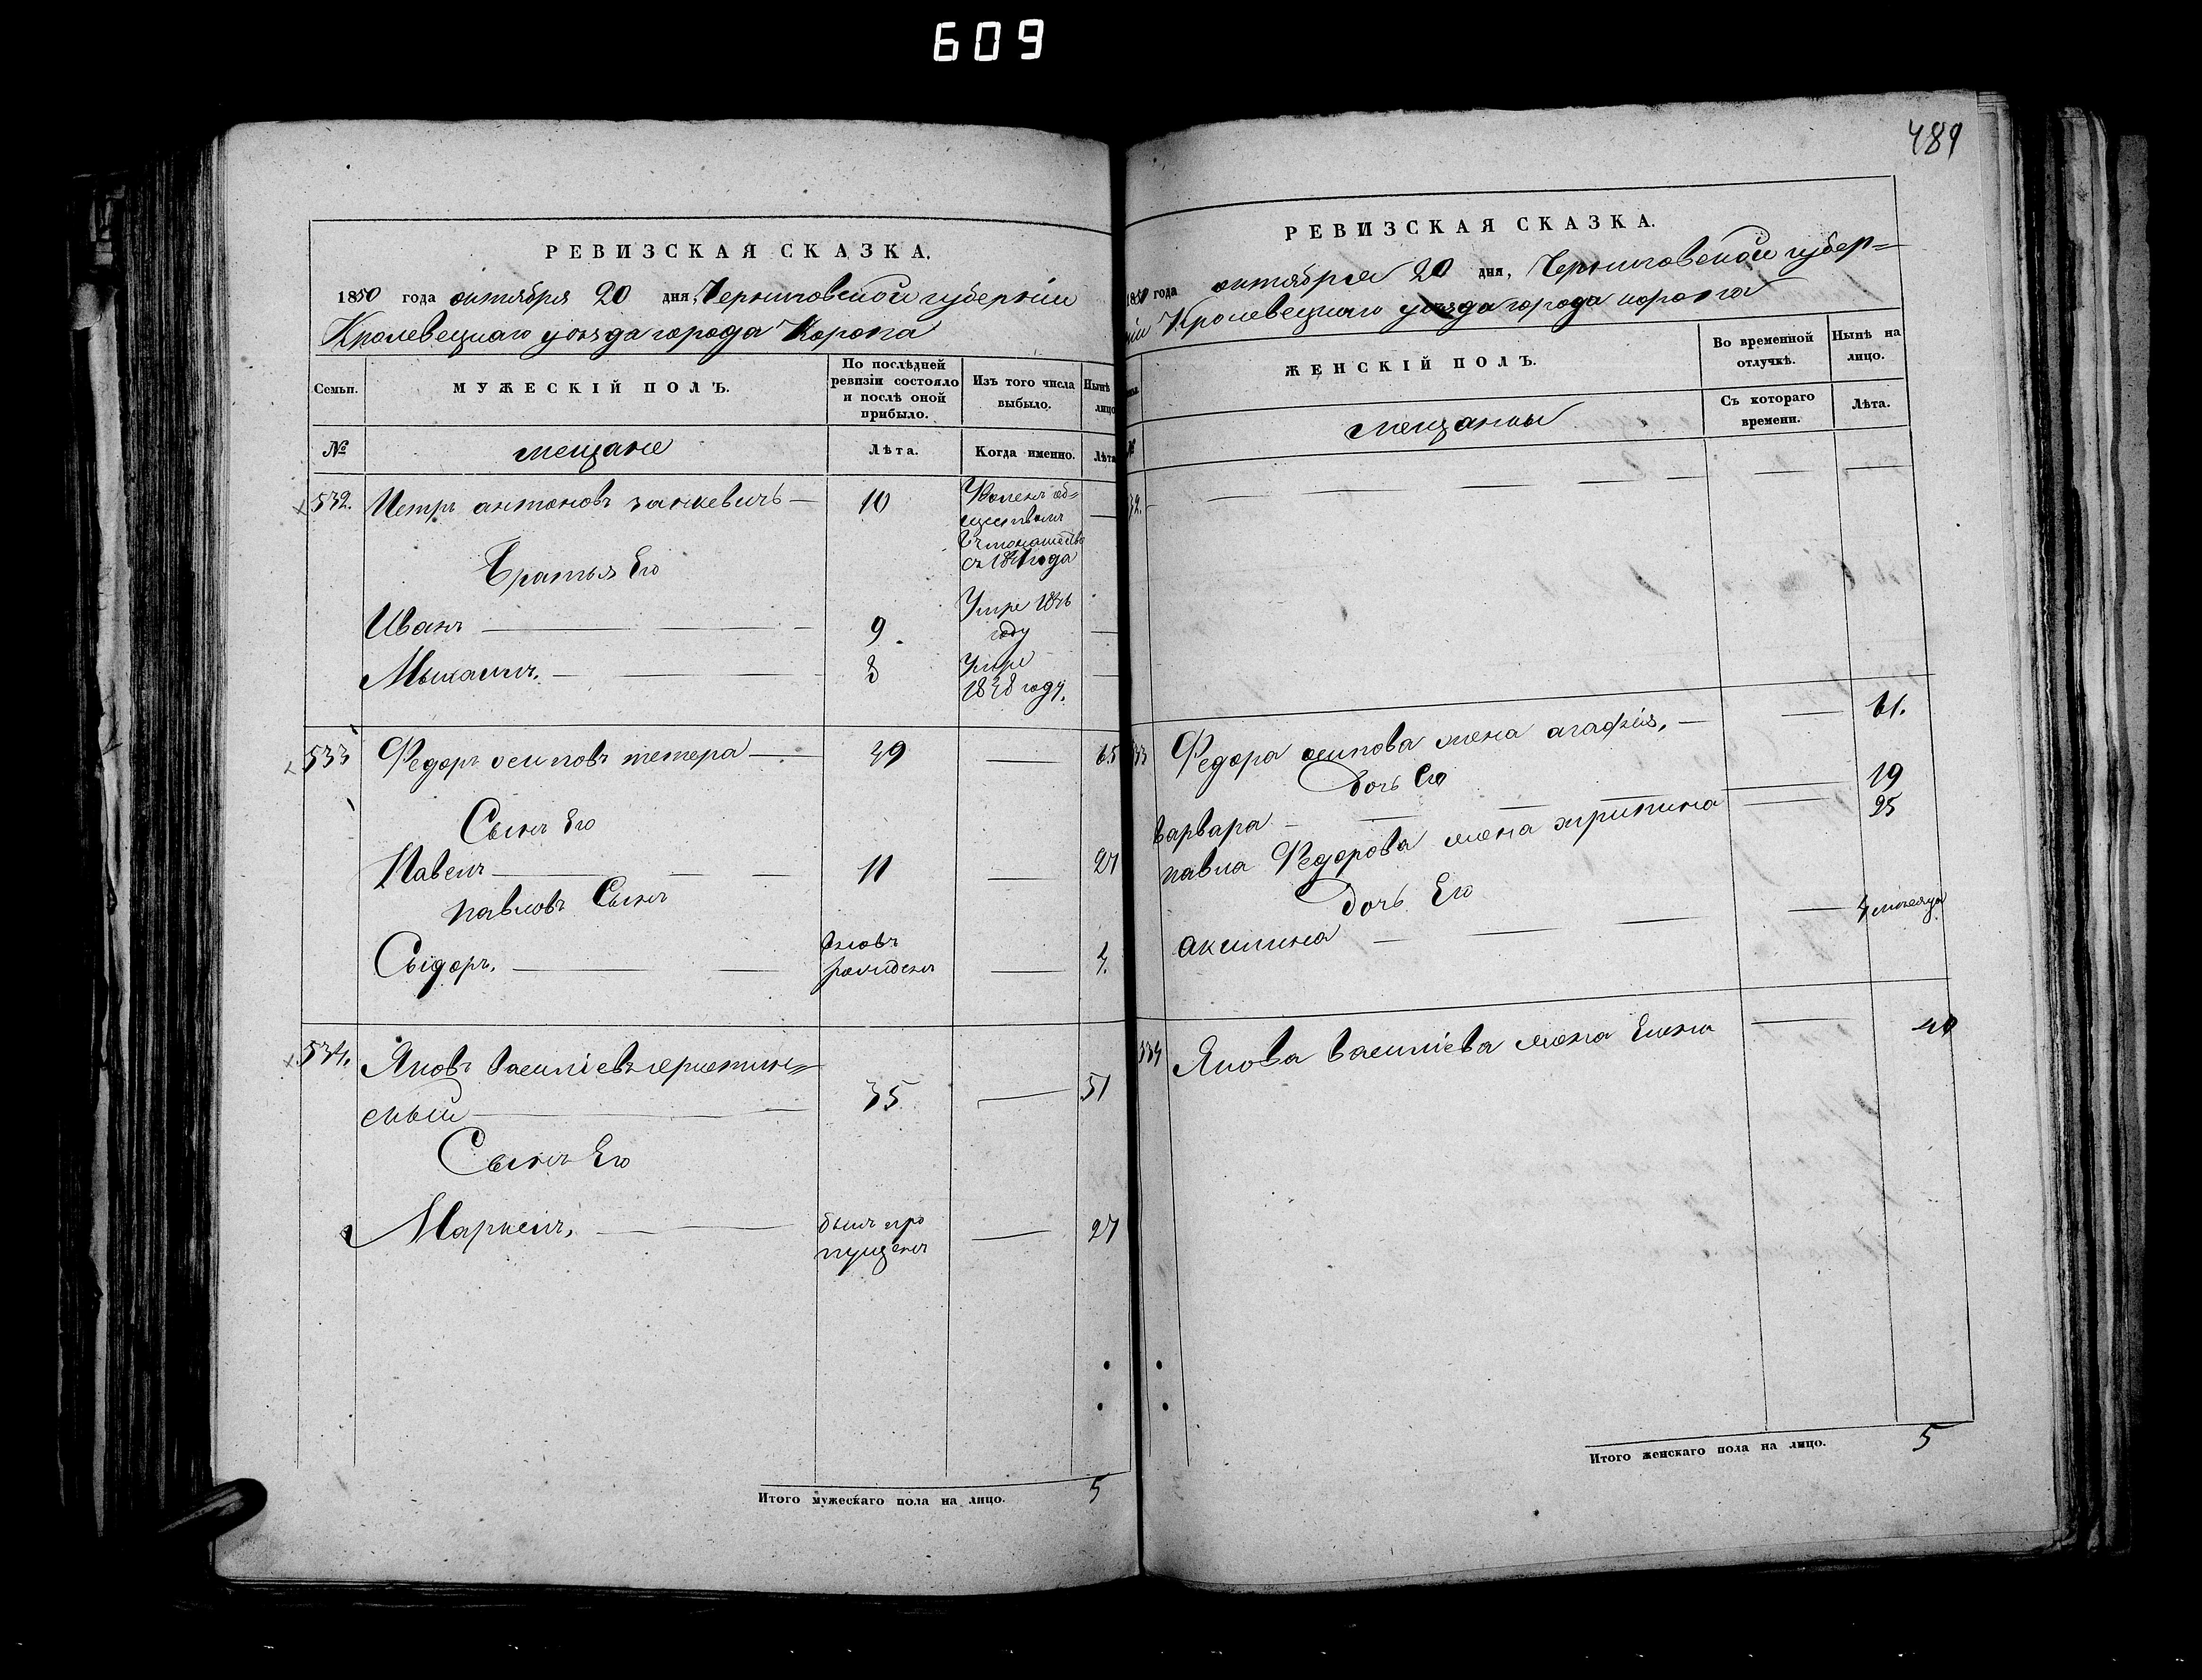 609
РЕВИЗСКАЯ СКАЗКА.
1850 года октября 20 дня, Черниговской губерніи
Кролевецкаго уѣзда города Коропа
Семьи.
МУЖЕСКІЙ ПОЛЪ.
По послѣдней ревизіи состояло и послѣ оной прибыло.
Изъ того числа выбыло.
Нынѣ лицо
№
мещане
Лѣта.
Когда именно.
Лѣта
532. Петръ антоновъ занкевичъ — 10
обществомъ
года
Братья Его
Иванъ — 9 Умре 1846 году —
Михаилъ. — 8 Умре 1848 году. —
533 Федоръ осиповъ тетера — 49 — 65
Сынъ Его
Павелъ — 11 — 27
павловъ Сынъ
Сыдоръ. — вновь рожденъ — 4.
534.
Яковъ Василіевъ
скый — 35 — 51
Сынъ Его
Маркелъ, — былъ про
пущенъ — 27
Итого мужескаго пола на лицо. 5
489
РЕВИЗСКАЯ СКАЗКА.
1850 года октября 20 дня, Черниговской губер=
ніи Кролевецкаго уѣзда города коропа
ЖЕНСКІЙ ПОЛЪ.
Во временной отлучкѣ.
Нынѣ на лицо.
№
мещанки
Съ котораго времени.
Лѣта.
32. — — —
33 Федора осипова жена агафія, — — 61.
дочь Его
варвара — — 19
павла Федорова жена — 25
дочь Его
акилина — — 4 месяца
334 Якова Василіева жена Елена — 40
Итого женскаго пола на лицо. 5